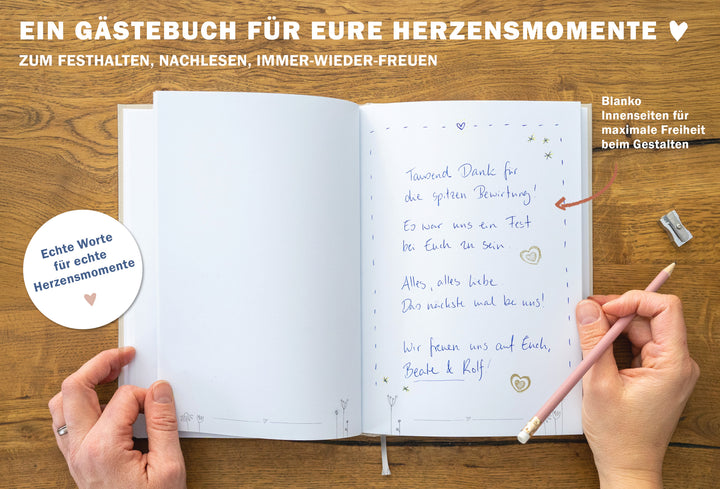 EIN GÄSTEBUCH FÜR EURE HERZENSMOMENTE
ZUM FESTHALTEN, NACHLESEN, IMMER-WIEDER-FREUEN
Blanko
Innenseiten für
maximale Freiheit
beim Gestalten
Echte Worte
für echte
Herzensmomente
Tausend Dank für
die spitzen Bewirtung!
Es war uns ein Fest
bei Euch zu sein.
Alles, alles Liebe
Das nächste mal bei uns!
Wir freuen uns auf Euch,
Beate & Rolf!